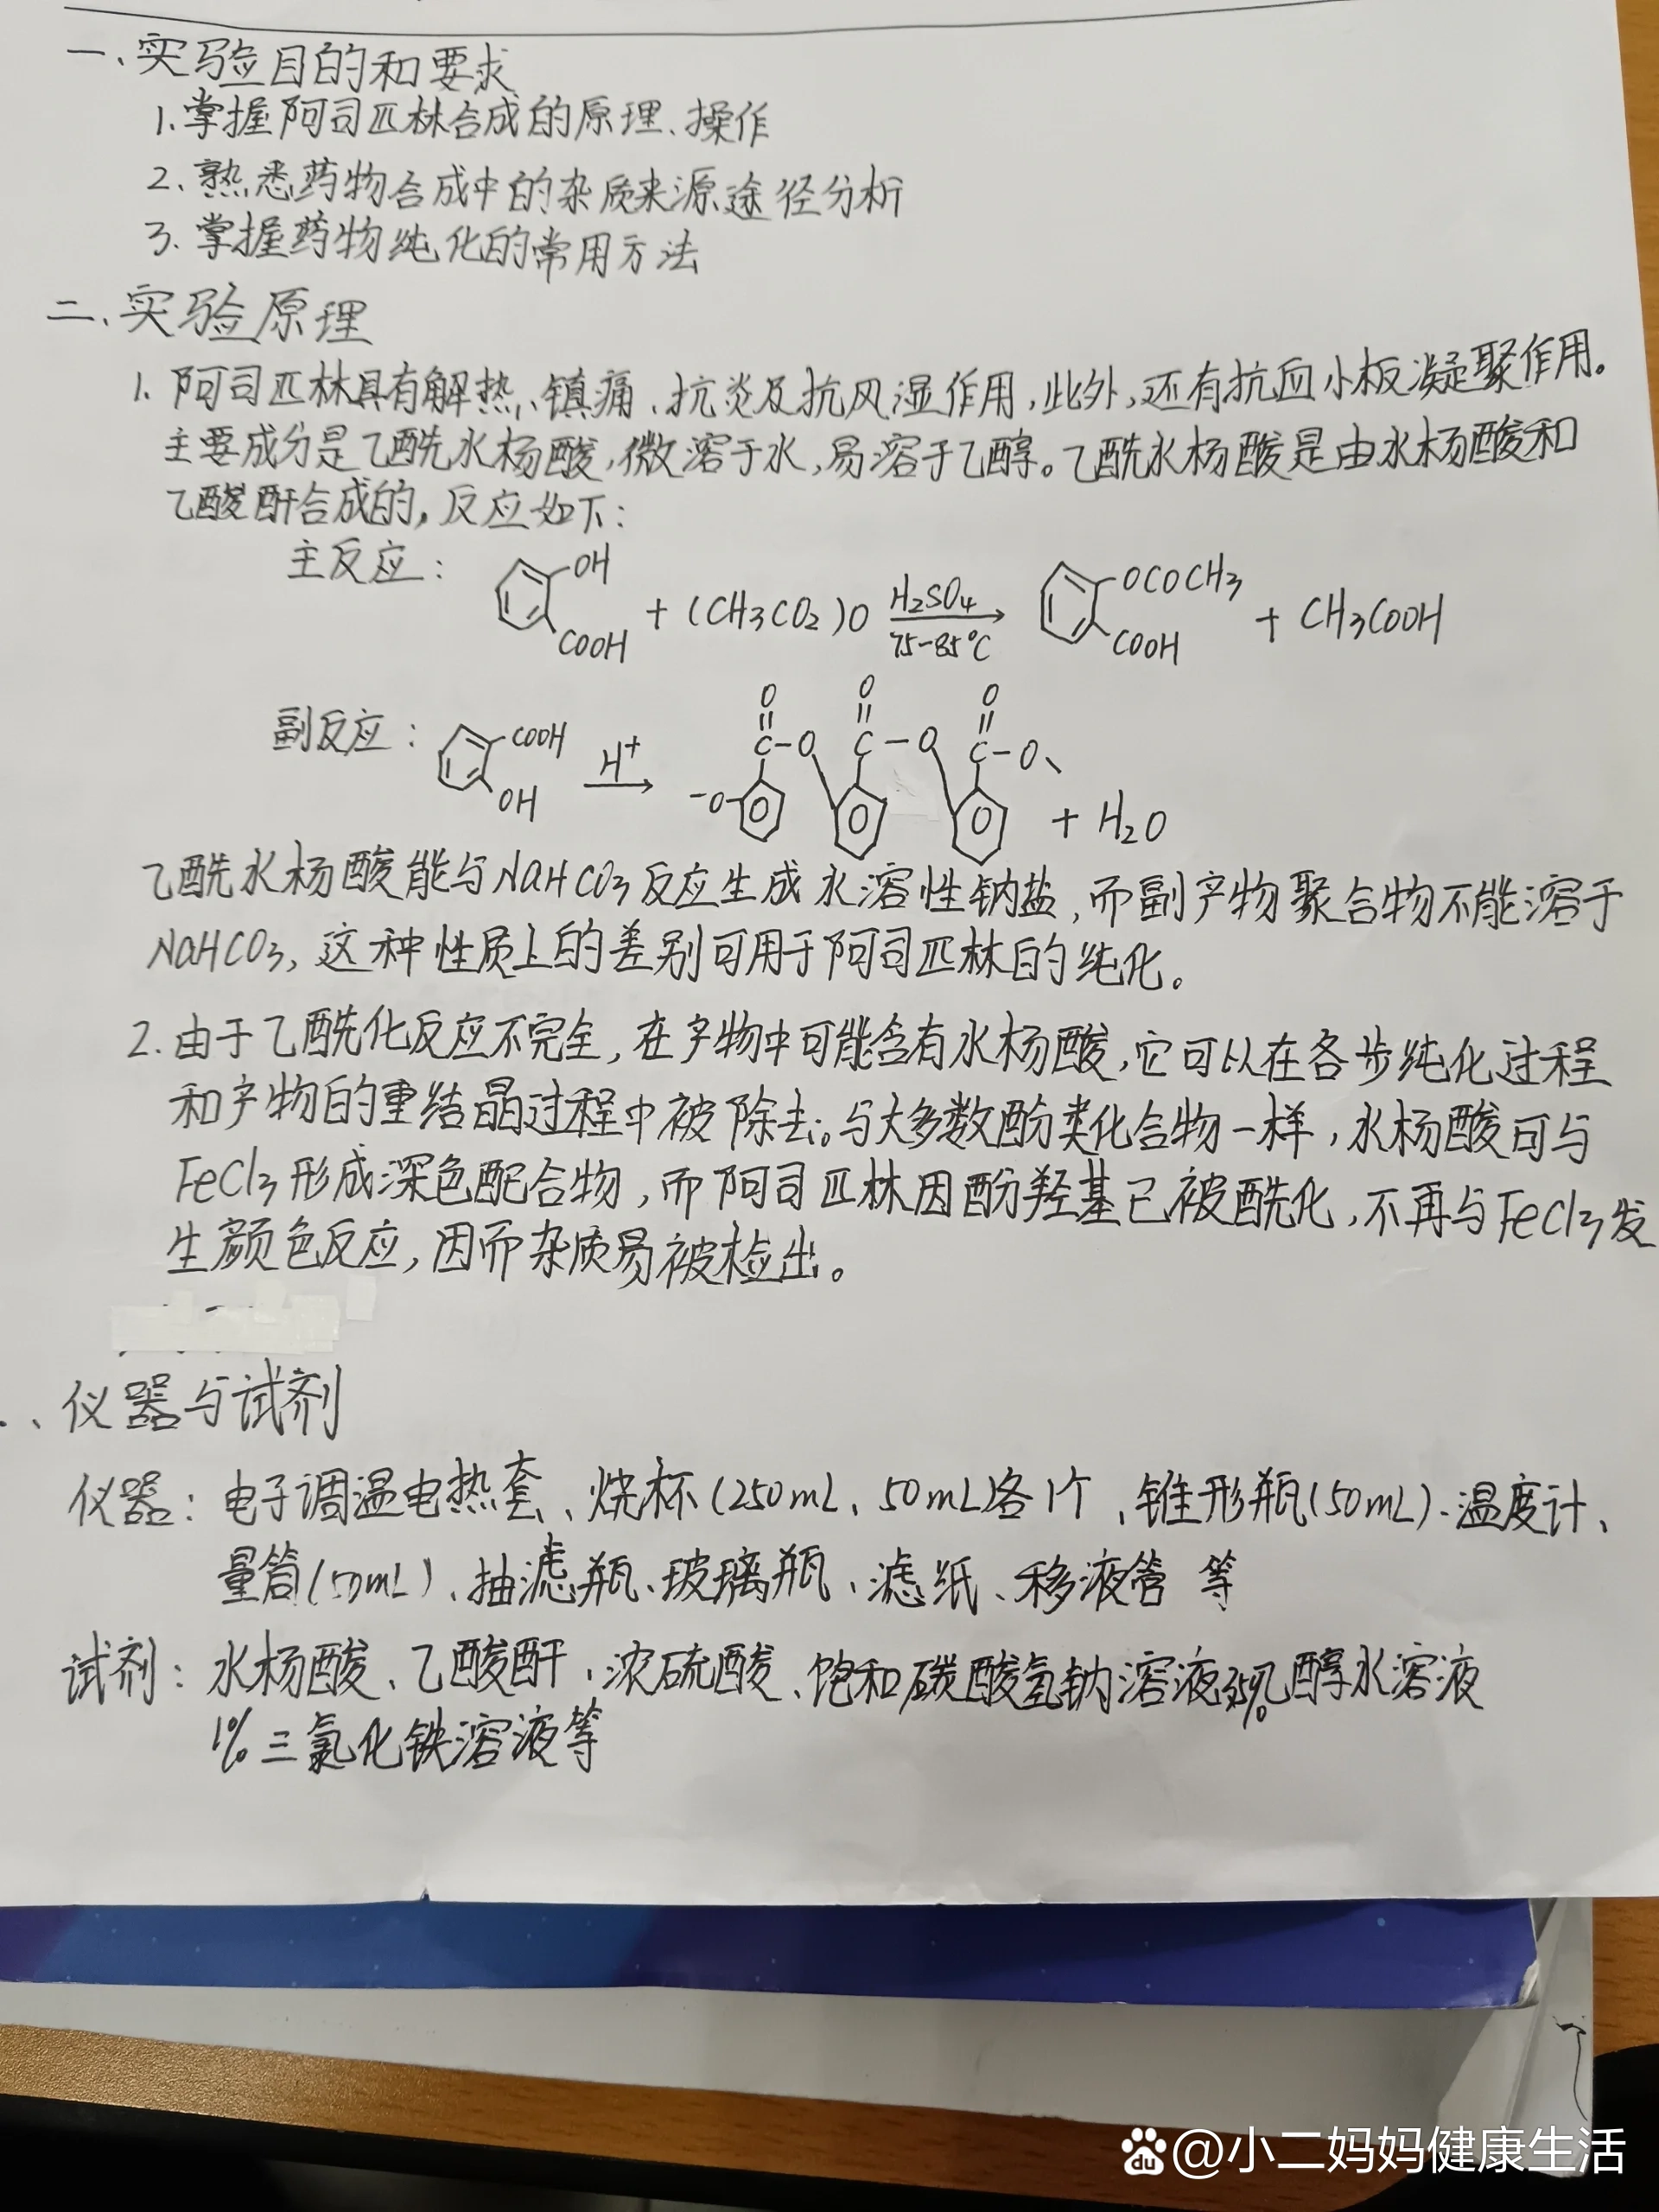 一、实验目的和要求
1.掌握阿司匹林合成的原理、操作
2、熟悉药物合成中的杂质来源途径分析
3.掌握药物纯化的常用方法
二、实验原理
1.阿司匹林具有解热、镇痛、抗炎及抗风湿作用,此外,还有抗血小板凝聚作用。
主要成分是乙酰水杨酸,微溶于水,易溶于乙醇。乙酰水杨酸是由水杨酸和
乙酸酐合成的,反应如下:
主反应: OH COOH + (CH3CO2)O H2SO4 75-85℃ OCOCH3 COOH + CH3COOH
副反应: COOH OH H+ O C-O O C-O O C-O -O + H2O
乙酰水杨酸能与NaHCO3反应生成水溶性钠盐,而副产物聚合物不能溶于
NaHCO3,这种性质上的差别可用于阿司匹林的纯化。
2.由于乙酰化反应不完全,在产物中可能含有水杨酸,它可以在各步纯化过程
和产物的重结晶过程中被除去。与大多数酚类化合物一样,水杨酸可与
FeCl3形成深色配合物,而阿司匹林因酚羟基已被酰化,不再与FeCl3发
生颜色反应,因而杂质易被检出。
、仪器与试剂
仪器:电子调温电热套、烧杯(250mL、50mL)各1个、锥形瓶(50mL)、温度计、
量筒(50mL)、抽滤瓶、玻璃瓶、滤纸、移液管 等
试剂:水杨酸、乙酸酐、浓硫酸、饱和碳酸氢钠溶液 乙醇水溶液
1%三氯化铁溶液等
du @小二妈妈健康生活